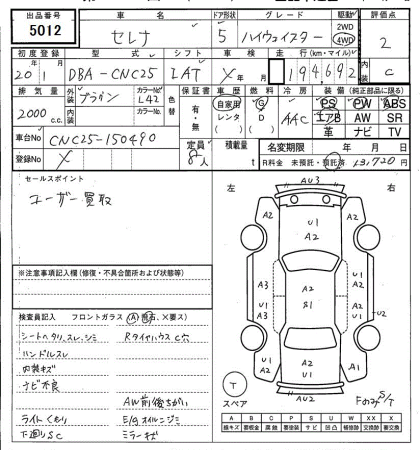 出品番号 車名 ドア形状 グレード 駆動 評価点
5012 セレナ 5 ハイウェイスター 2WD 4WD 2
初度登録 型式 シフト 車検 走行(km・マイル) 内装
20 1 DBA-CNC25 IAT X 年 月 194,692 C
排気量 外装 ブラウン カラーNo. L42 色替 保証書 車歴 燃料 冷房 装備(純正部品に限る)
2000 c.c. 内装 カラーNo. 有・無 自家用 レンタ G D AAC PS PW ABS
エアB AW SR
革 ナビ TV
車台No CNC25-150490 定員 8人 積載量 t 名変期限 年 月 日
登録No X R料金 未預託・預託済 ¥13,720 円
セールスポイント
ユーザー買取
左 右
AU3
A2 A2
U1
A2
A3 A2 A3
U1 S1 U1
A2 A2 U2
U1 A2 A1
A1 U1
A2
AU2
T
スペア
※注意事項記入欄(修復・不具合箇所および状態等)
検査員記入 フロントガラス(A飛石、X要ス)
シートヘタリ、スレ、シミ Rタイヤハウス C穴
ハンドルスレ
内装キズ
ナビ不良
AW前後ちがい
ライトくもり E/Gオイルニジミ
下廻りSC ミラーキズ
A B C P S U W X XX X
線キズ 要板金 腐蝕 要塗装 サビ 凹凸 補修跡 要交換 交換跡